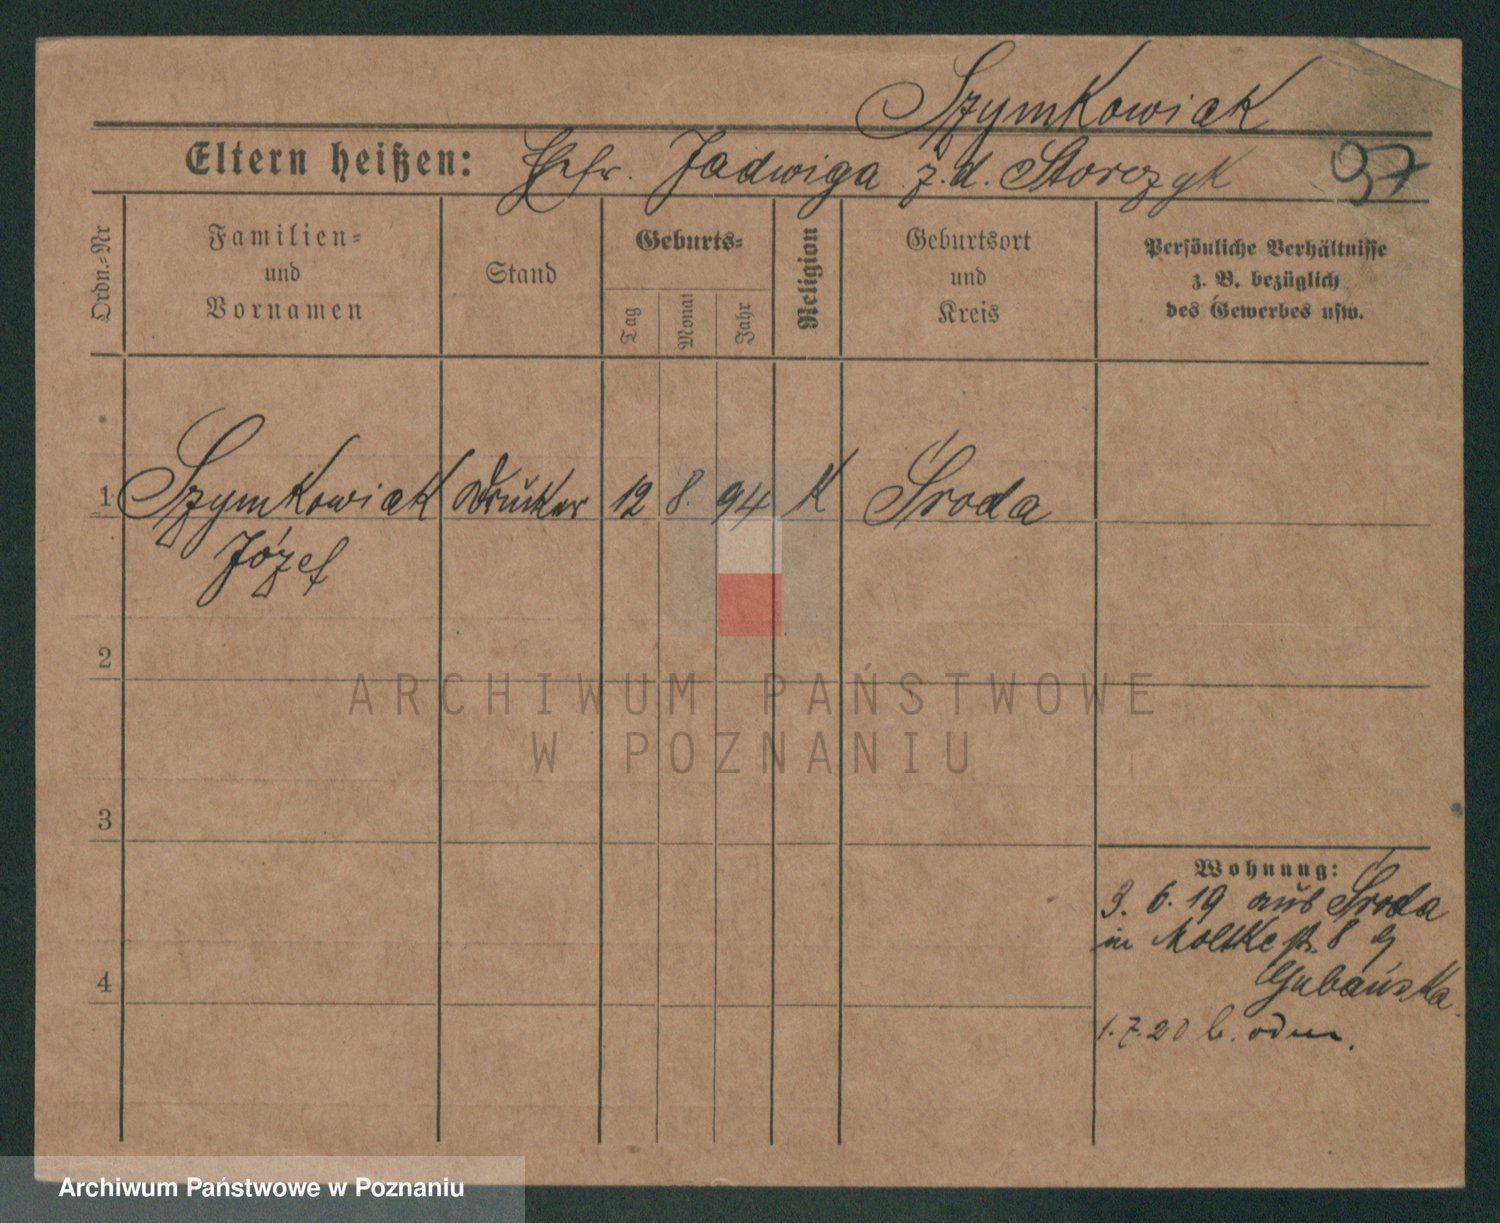 Szymkowiak
Eltern heißen: Jadwiga z. d. Storczyk 97
Ordn.-Nr
Familien-
und
Vornamen
Stand
Geburts-
Tag
Monat
Jahr
Religion
Geburtsort
und
Kreis
Persönliche Verhältnisse
z. B. bezüglich
des Gewerbes usw.
1 Szymkowiak Drucker 12 8. 94 K Środa
Józef
2
3
4
Wohnung:
3. 6. 19 aus Środa
in Moltkestr. 8
1. 7. 20
ARCHIWUM PAŃSTWOWE
W POZNANIU
Archiwum Państwowe w Poznaniu